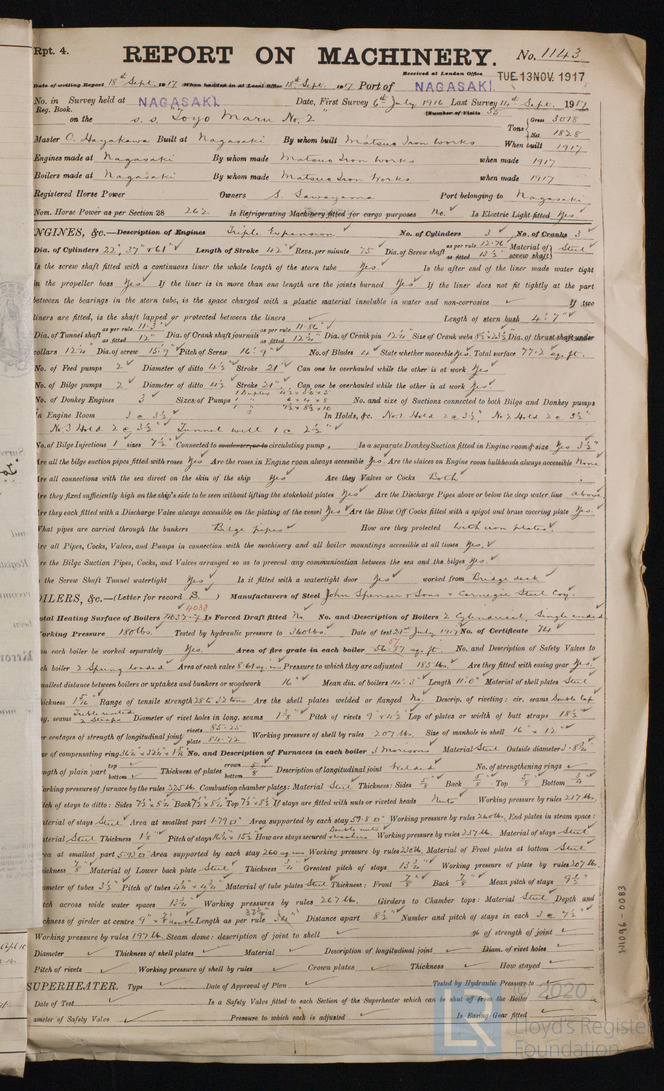 Rpt. 4.
REPORT ON MACHINERY. No. 1143
Received at London Office TUE. 13 NOV. 1917
Date of writing Report 18th Sept. 1917 When handed in at Local Office 18th Sept. 1917 Port of NAGASAKI
No. in Survey held at NAGASAKI. Date, First Survey 6th July 1916 Last Survey 14th Sept. 1917
Reg. Book. (Number of Visits 58
on the s.s. "Toyo Maru No. 2" Tons Gross 3078 Net 1828
Master O. Hayakawa Built at Nagasaki By whom built Matsuo Iron Works When built 1917
Engines made at Nagasaki By whom made Matsuo Iron Works when made 1917
Boilers made at Nagasaki By whom made Matsuo Iron Works when made 1917
Registered Horse Power Owners S. Sawayama Port belonging to Nagasaki
Nom. Horse Power as per Section 28 262 Is Refrigerating Machinery fitted for cargo purposes No. Is Electric Light fitted Yes
ENGINES, &c.—Description of Engines Triple Expansion No. of Cylinders 3 No. of Cranks 3
Dia. of Cylinders 22", 37" & 61" Length of Stroke 42" Revs. per minute 75 Dia. of Screw shaft as per rule 12.76 as fitted 13½" Material of screw shaft Steel
Is the screw shaft fitted with a continuous liner the whole length of the stern tube Yes Is the after end of the liner made water tight
in the propeller boss Yes If the liner is in more than one length are the joints burned Yes If the liner does not fit tightly at the part
between the bearings in the stern tube, is the space charged with a plastic material insoluble in water and non-corrosive If two
liners are fitted, is the shaft lapped or protected between the liners Length of stern bush 4'.7"
Dia. of Tunnel shaft as per rule 11.3" as fitted 12" Dia. of Crank shaft journals as per rule 11.86" as fitted 12¼" Dia. of Crank pin 12¼" Size of Crank webs Dia. of thrust shaft under
collars 12¼" Dia. of screw 15'.9" Pitch of Screw 16'.9" No. of Blades 4 State whether moveable Yes Total surface 77.2 sq. ft.
No. of Feed pumps 2 Diameter of ditto 4½" Stroke 21" Can one be overhauled while the other is at work Yes
No. of Bilge pumps 2 Diameter of ditto 4½" Stroke 21" Can one be overhauled while the other is at work Yes
No. of Donkey Engines 3 Sizes of Pumps No. and size of Suctions connected to both Bilge and Donkey pumps
In Engine Room 3 @ 3½" In Holds, &c. No. 1 Hold 2 @ 3½", No. 2 Hold 2 @ 3½"
No. 3 Hold 2 @ 3½" Tunnel well 1 @ 2½"
No. of Bilge Injections 1 sizes 7½" Connected to condenser, or to circulating pump. Is a separate Donkey Suction fitted in Engine room & size Yes 3½"
Are all the bilge suction pipes fitted with roses Yes Are the roses in Engine room always accessible Yes Are the sluices on Engine room bulkheads always accessible None
Are all connections with the sea direct on the skin of the ship Yes Are they Valves or Cocks Both
Are they fixed sufficiently high on the ship's side to be seen without lifting the stokehold plates Yes Are the Discharge Pipes above or below the deep water line above
Are they each fitted with a Discharge Valve always accessible on the plating of the vessel Yes Are the Blow Off Cocks fitted with a spigot and brass covering plate Yes.
What pipes are carried through the bunkers Bilge pipes How are they protected with iron plates.
Are all Pipes, Cocks, Valves, and Pumps in connection with the machinery and all boiler mountings accessible at all times Yes.
Are the Bilge Suction Pipes, Cocks, and Valves arranged so as to prevent any communication between the sea and the bilges Yes.
Is the Screw Shaft Tunnel watertight Yes Is it fitted with a watertight door Yes worked from Bridge deck
BOILERS, &c.—(Letter for record B.) Manufacturers of Steel John Spencer & Sons & Carnegie Steel Coy.
4033
Total Heating Surface of Boilers Is Forced Draft fitted No No. and Description of Boilers 2 Cylindrical, Single ended
Working Pressure 180 lbs. Tested by hydraulic pressure to 360 lbs. Date of test 21st July 1917 No. of Certificate 74
Can each boiler be worked separately Yes. Area of fire grate in each boiler sq. ft. No. and Description of Safety Valves to
each boiler 2 Spring loaded Area of each valve Pressure to which they are adjusted 185 lb. Are they fitted with easing gear Yes
Smallest distance between boilers or uptakes and bunkers or woodwork 16" Mean dia. of boilers 14'.5" Length 11'.0" Material of shell plates Steel
Thickness Range of tensile strength 28 to 32 tons Are the shell plates welded or flanged No. Descrip. of riveting: cir. seams Double lap
long. seams Diameter of rivet holes in long. seams 1⅛ Pitch of rivets Lap of plates or width of butt straps 18½
Per centages of strength of longitudinal joint rivets 85.25 plate 84.72 Working pressure of shell by rules 207 lb. Size of manhole in shell 16" x 12"
Size of compensating ring No. and Description of Furnaces in each boiler 3 Morisons Material Steel Outside diameter
Length of plain part top bottom Thickness of plates crown bottom 5/8 Description of longitudinal joint Welded No. of strengthening rings
Working pressure of furnace by the rules 225 lb. Combustion chamber plates: Material Steel Thickness: Sides 5/8 Back 5/8 Top 5/8 Bottom
Pitch of stays to ditto: Sides Back Top If stays are fitted with nuts or riveted heads Nuts Working pressure by rules 237 lb.
Material of stays Steel Area at smallest part 1.79 Area supported by each stay 59.8 Working pressure by rules 240 lb. End plates in steam space:
Material Steel Thickness 1⅛ Pitch of stays How are stays secured Working pressure by rules 237 lb. Material of stays Steel
Area at smallest part Area supported by each stay 260 Working pressure by rules Material of Front plates at bottom Steel
Thickness 7/8 Material of Lower back plate Steel Thickness Greatest pitch of stays 13½ Working pressure of plate by rules 207 lb.
Diameter of tubes 3½ Pitch of tubes Material of tube plates Steel Thickness: Front 7/8 Back 7/8 Mean pitch of stays 9½
Pitch across wide water spaces 13½ Working pressures by rules 267 lb. Girders to Chamber tops: Material Steel Depth and
thickness of girder at centre Length as per rule Distance apart 8½ Number and pitch of stays in each 3 @ 7½
Working pressure by rules 197 lb. Steam dome: description of joint to shell % of strength of joint
Diameter Thickness of shell plates Material Description of longitudinal joint Diam. of rivet holes
Pitch of rivets Working pressure of shell by rules Crown plates Thickness How stayed
SUPERHEATER. Type Date of Approval of Plan Tested by Hydraulic Pressure to
Date of Test Is a Safety Valve fitted to each Section of the Superheater which can be shut off from the Boiler
Diameter of Safety Valve Pressure to which each is adjusted Is Easing Gear fitted
W1096-0083
© 2020
Lloyd's Register
Foundation